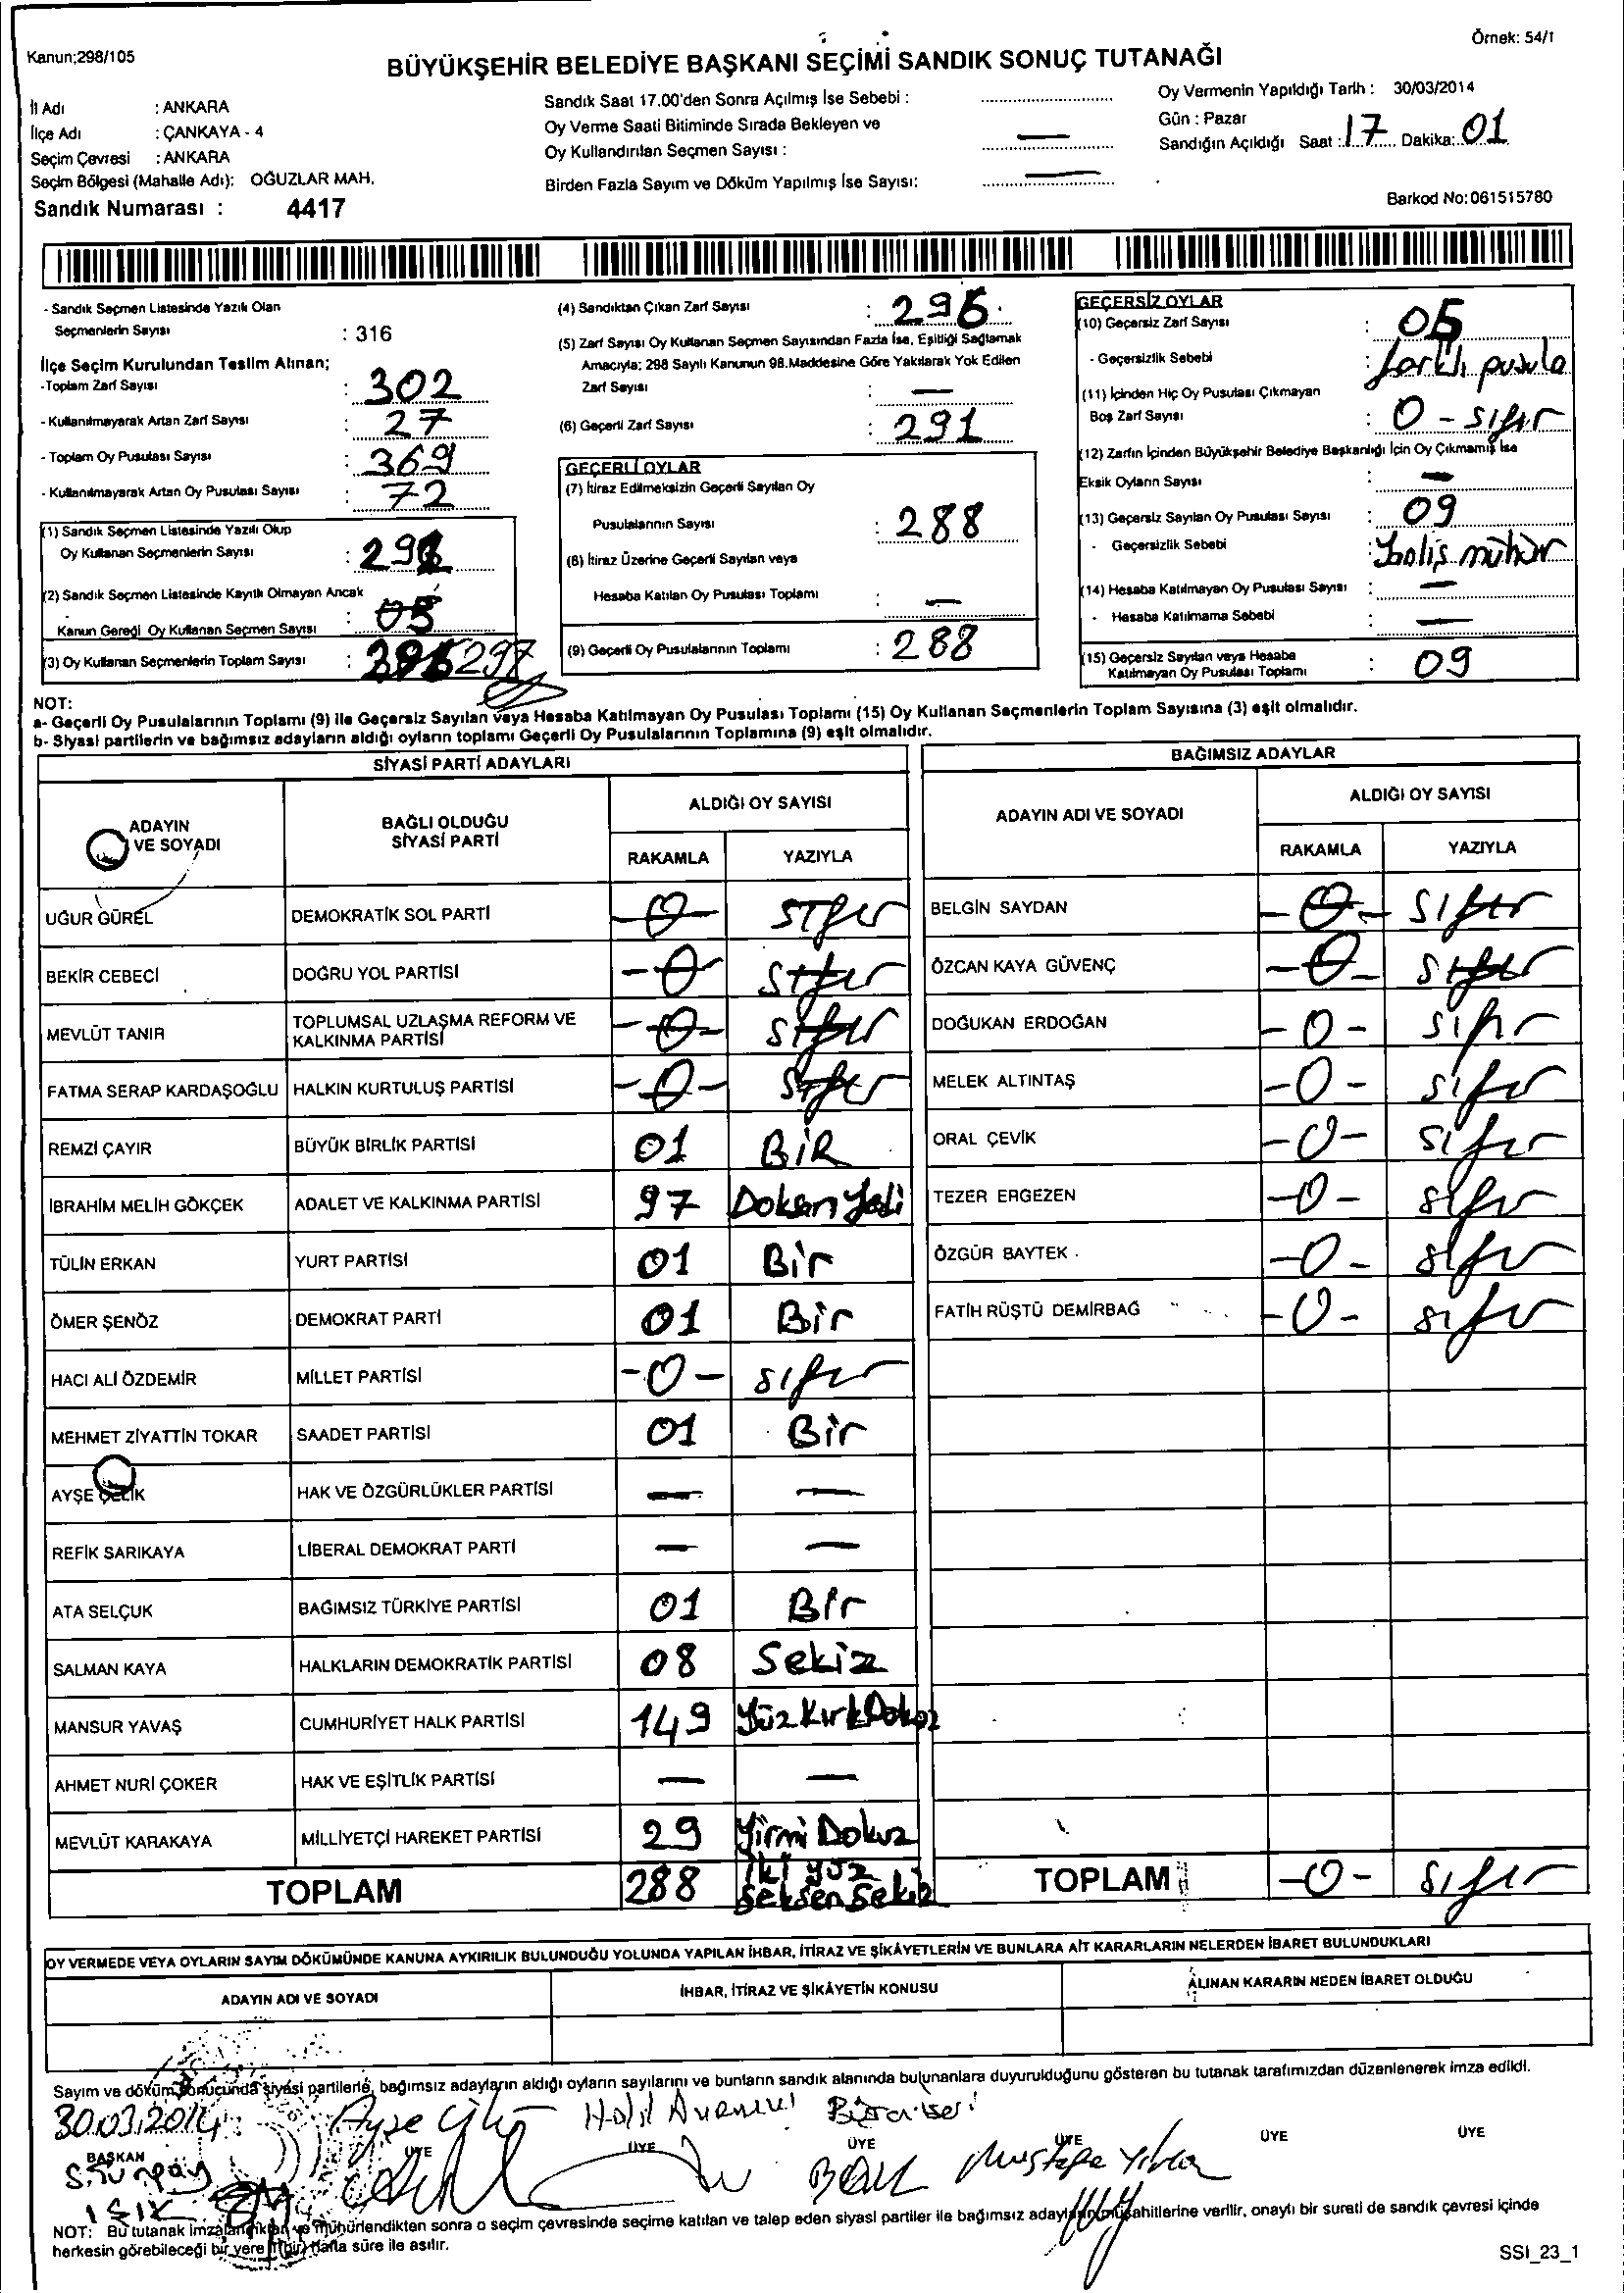 Kanun;298/105
Örnek: 54/1
BÜYÜKŞEHİR BELEDİYE BAŞKANI SEÇİMİ SANDIK SONUÇ TUTANAĞI
İl Adı : ANKARA
İlçe Adı : ÇANKAYA - 4
Seçim Çevresi : ANKARA
Seçim Bölgesi (Mahalle Adı): OĞUZLAR MAH.
Sandık Numarası : 4417
Sandık Saat 17.00'den Sonra Açılmış İse Sebebi :
Oy Verme Saati Bitiminde Sırada Bekleyen ve
Oy Kullandırılan Seçmen Sayısı : —
Birden Fazla Sayım ve Döküm Yapılmış İse Sayısı: —
Oy Vermenin Yapıldığı Tarih : 30/03/2014
Gün : Pazar
Sandığın Açıldığı Saat : 17 Dakika: 01
Barkod No:061515780
- Sandık Seçmen Listesinde Yazılı Olan
Seçmenlerin Sayısı : 316
İlçe Seçim Kurulundan Teslim Alınan;
-Toplam Zarf Sayısı : 302
- Kullanılmayarak Artan Zarf Sayısı : 27
- Toplam Oy Pusulası Sayısı : 369
- Kullanılmayarak Artan Oy Pusulası Sayısı : 72
(1) Sandık Seçmen Listesinde Yazılı Olup
Oy Kullanan Seçmenlerin Sayısı :
(2) Sandık Seçmen Listesinde Kayıtlı Olmayan Ancak
Kanun Gereği Oy Kullanan Seçmen Sayısı : 05
(3) Oy Kullanan Seçmenlerin Toplam Sayısı : 297
(4) Sandıktan Çıkan Zarf Sayısı : 296
(5) Zarf Sayısı Oy Kullanan Seçmen Sayısından Fazla İse, Eşitliği Sağlamak
Amacıyla; 298 Sayılı Kanunun 98.Maddesine Göre Yakılarak Yok Edilen
Zarf Sayısı : —
(6) Geçerli Zarf Sayısı : 291
GEÇERLİ OYLAR
(7) İtiraz Edilmeksizin Geçerli Sayılan Oy
Pusulalarının Sayısı : 288
(8) İtiraz Üzerine Geçerli Sayılan veya
Hesaba Katılan Oy Pusulası Toplamı : —
(9) Geçerli Oy Pusulalarının Toplamı : 288
GEÇERSİZ OYLAR
(10) Geçersiz Zarf Sayısı : 05
- Geçersizlik Sebebi : farklı pusula
(11) İçinden Hiç Oy Pusulası Çıkmayan
Boş Zarf Sayısı : 0 - sıfır
(12) Zarfın İçinden Büyükşehir Belediye Başkanlığı İçin Oy Çıkmamış İse
Eksik Oyların Sayısı : —
(13) Geçersiz Sayılan Oy Pusulası Sayısı : 09
- Geçersizlik Sebebi : mühür
(14) Hesaba Katılmayan Oy Pusulası Sayısı : —
- Hesaba Katılmama Sebebi : —
(15) Geçersiz Sayılan veya Hesaba
Katılmayan Oy Pusulası Toplamı : 09
NOT:
a- Geçerli Oy Pusulalarının Toplamı (9) ile Geçersiz Sayılan veya Hesaba Katılmayan Oy Pusulası Toplamı (15) Oy Kullanan Seçmenlerin Toplam Sayısına (3) eşit olmalıdır.
b- Siyasi partilerin ve bağımsız adayların aldığı oyların toplamı Geçerli Oy Pusulalarının Toplamına (9) eşit olmalıdır.
SİYASİ PARTİ ADAYLARI
ADAYIN
VE SOYADI
BAĞLI OLDUĞU
SİYASİ PARTİ
ALDIĞI OY SAYISI
RAKAMLA YAZIYLA
UĞUR GÜREL DEMOKRATİK SOL PARTİ -0- sıfır
BEKİR CEBECİ DOĞRU YOL PARTİSİ -0- sıfır
MEVLÜT TANIR TOPLUMSAL UZLAŞMA REFORM VE
KALKINMA PARTİSİ -0- sıfır
FATMA SERAP KARDAŞOĞLU HALKIN KURTULUŞ PARTİSİ -0- sıfır
REMZİ ÇAYIR BÜYÜK BİRLİK PARTİSİ 01 BİR
İBRAHİM MELİH GÖKÇEK ADALET VE KALKINMA PARTİSİ 97 Doksan Yedi
TÜLİN ERKAN YURT PARTİSİ 01 Bir
ÖMER ŞENÖZ DEMOKRAT PARTİ 01 Bir
HACI ALİ ÖZDEMİR MİLLET PARTİSİ -0- sıfır
MEHMET ZİYATTİN TOKAR SAADET PARTİSİ 01 Bir
AYŞE ÇELİK HAK VE ÖZGÜRLÜKLER PARTİSİ — —
REFİK SARIKAYA LİBERAL DEMOKRAT PARTİ — —
ATA SELÇUK BAĞIMSIZ TÜRKİYE PARTİSİ 01 Bir
SALMAN KAYA HALKLARIN DEMOKRATİK PARTİSİ 08 Sekiz
MANSUR YAVAŞ CUMHURİYET HALK PARTİSİ 149 Yüz Kırk Dokuz
AHMET NURİ ÇOKER HAK VE EŞİTLİK PARTİSİ — —
MEVLÜT KARAKAYA MİLLİYETÇİ HAREKET PARTİSİ 29 Yirmi Dokuz
TOPLAM 288 İki yüz
Seksen Sekiz
BAĞIMSIZ ADAYLAR
ADAYIN ADI VE SOYADI
ALDIĞI OY SAYISI
RAKAMLA YAZIYLA
BELGİN SAYDAN -0- sıfır
ÖZCAN KAYA GÜVENÇ -0- sıfır
DOĞUKAN ERDOĞAN -0- sıfır
MELEK ALTINTAŞ -0- sıfır
ORAL ÇEVİK -0- sıfır
TEZER ERGEZEN -0- sıfır
ÖZGÜR BAYTEK -0- sıfır
FATİH RÜŞTÜ DEMİRBAĞ -0- sıfır
TOPLAM -0- sıfır
OY VERMEDE VEYA OYLARIN SAYIM DÖKÜMÜNDE KANUNA AYKIRILIK BULUNDUĞU YOLUNDA YAPILAN İHBAR, İTİRAZ VE ŞİKÂYETLERİN VE BUNLARA AİT KARARLARIN NELERDEN İBARET BULUNDUKLARI
ADAYIN ADI VE SOYADI
İHBAR, İTİRAZ VE ŞİKÂYETİN KONUSU
ALINAN KARARIN NEDEN İBARET OLDUĞU
Sayım ve döküm sonucunda siyasi partilerle, bağımsız adayların aldığı oyların sayılarını ve bunların sandık alanında bulunanlara duyurulduğunu gösteren bu tutanak tarafımızdan düzenlenerek imza edildi.
30.03.2014
BAŞKAN ÜYE ÜYE ÜYE ÜYE ÜYE ÜYE
IŞIK
Mustafa
NOT: Bu tutanak imzalandıktan ve mühürlendikten sonra o seçim çevresinde seçime katılan ve talep eden siyasi partiler ile bağımsız adayların müşahitlerine verilir, onaylı bir sureti de sandık çevresi içinde
herkesin görebileceği bir yere 1 (bir) hafta süre ile asılır.
SSI_23_1